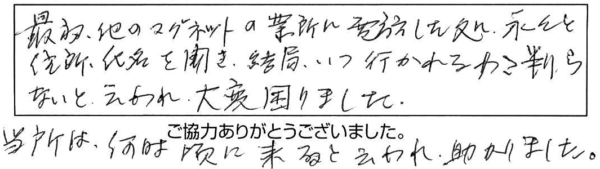 最初、他のマグネットの業所に電話した処、永々と
住所、氏名を聞き、結局、いつ行かれるかも判ら
ないと、云われ、大変困りました。
ご協力ありがとうございました。
当所は、何時頃に来ると云われ、助かりました。